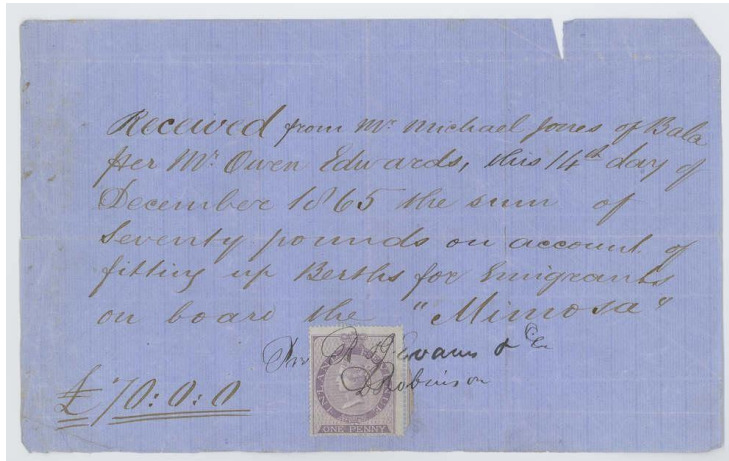 Received from Mr. Michael Jones of Bala
per Mr. Owen Edwards, this 14th day of
December 1865 the sum of
Seventy pounds on account of
fitting up Berths for Emigrants
on board the "Mimosa"
Evans & Co
Robinson
£70:0:0
INLAND
ONE PENNY